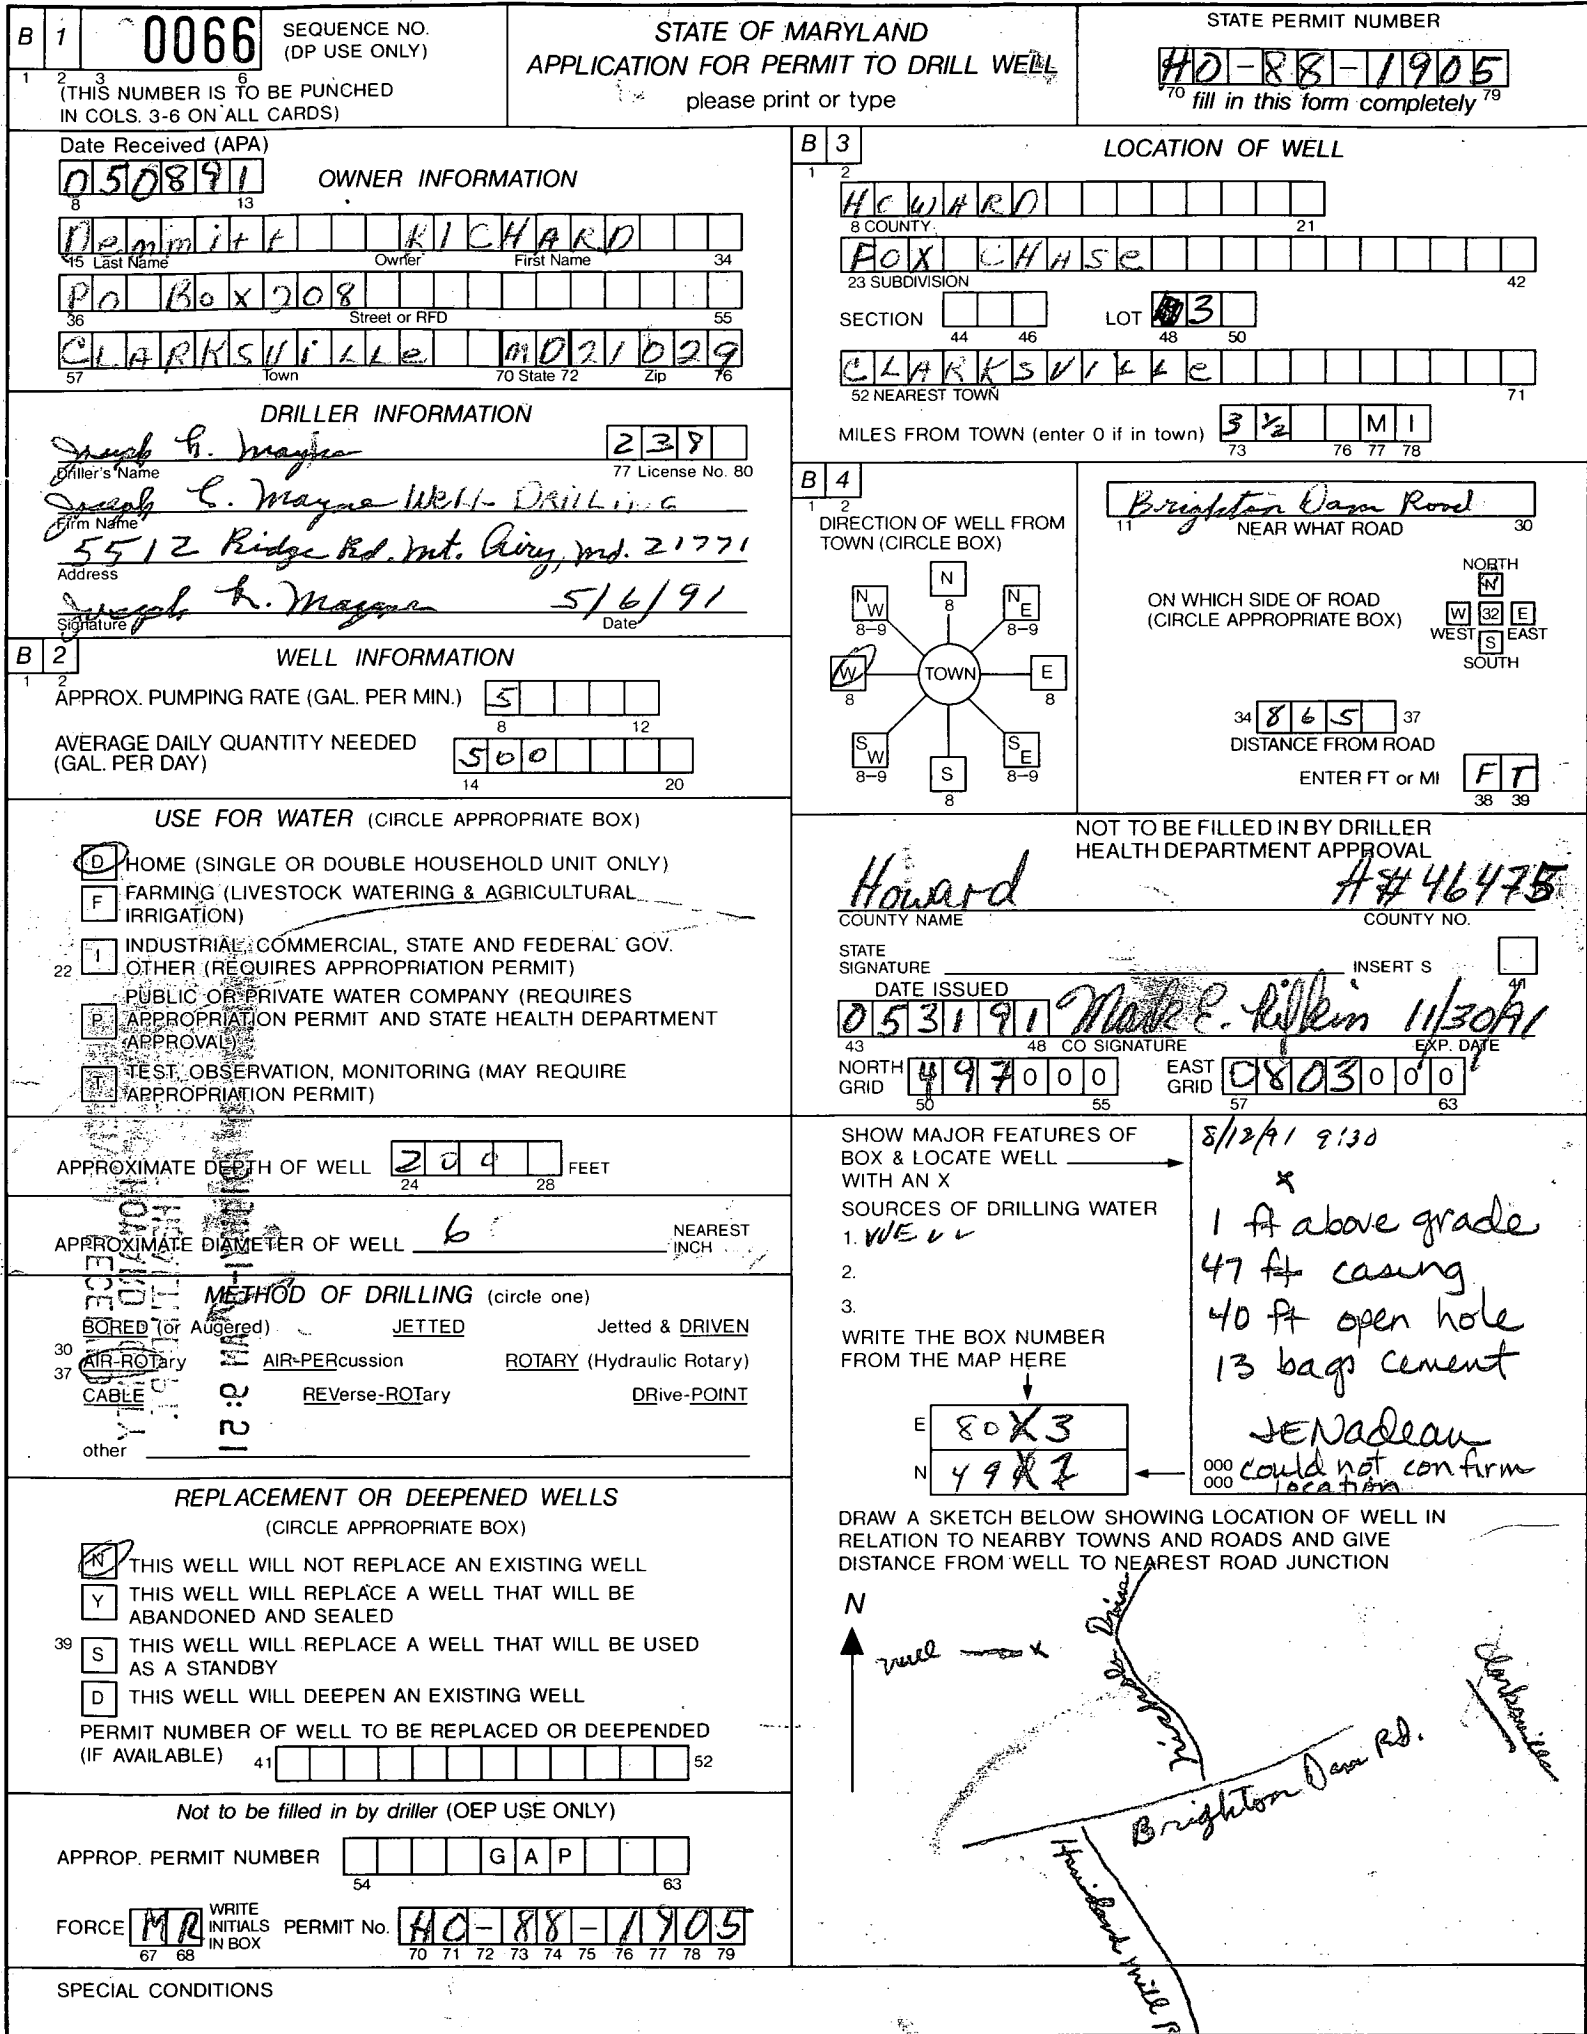 B 1 0066 SEQUENCE NO. (DP USE ONLY)
1 2 3 6
(THIS NUMBER IS TO BE PUNCHED
IN COLS. 3-6 ON ALL CARDS)
STATE OF MARYLAND
APPLICATION FOR PERMIT TO DRILL WELL
please print or type
STATE PERMIT NUMBER
HO-88-1905
70 fill in this form completely 79
Date Received (APA)
050891
8 13
OWNER INFORMATION
Demmitt RICHARD
15 Last Name Owner First Name 34
PO Box 208
36 Street or RFD 55
CLARKSVILLe MD 21029
57 Town 70 State 72 Zip 76
DRILLER INFORMATION
Joseph L. Mayne 238
Driller's Name 77 License No. 80
Joseph L. Mayne Well DRILLING
Firm Name
5512 Ridge Rd. Mt. Airy, Md. 21771
Address
Joseph L. Mayne 5/6/91
Signature Date
B 2 WELL INFORMATION
1 2
APPROX. PUMPING RATE (GAL. PER MIN.) 5
8 12
AVERAGE DAILY QUANTITY NEEDED
(GAL. PER DAY) 500
14 20
USE FOR WATER (CIRCLE APPROPRIATE BOX)
D HOME (SINGLE OR DOUBLE HOUSEHOLD UNIT ONLY)
F FARMING (LIVESTOCK WATERING & AGRICULTURAL
IRRIGATION)
22 I INDUSTRIAL, COMMERCIAL, STATE AND FEDERAL GOV.
OTHER (REQUIRES APPROPRIATION PERMIT)
P PUBLIC OR PRIVATE WATER COMPANY (REQUIRES
APPROPRIATION PERMIT AND STATE HEALTH DEPARTMENT
APPROVAL)
T TEST, OBSERVATION, MONITORING (MAY REQUIRE
APPROPRIATION PERMIT)
APPROXIMATE DEPTH OF WELL 200 FEET
24 28
APPROXIMATE DIAMETER OF WELL 6 NEAREST INCH
METHOD OF DRILLING (circle one)
BORED (or Augered) JETTED Jetted & DRIVEN
30 AIR-ROTary AIR-PERcussion ROTARY (Hydraulic Rotary)
37
CABLE REVerse-ROTary DRive-POINT
other
REPLACEMENT OR DEEPENED WELLS
(CIRCLE APPROPRIATE BOX)
N THIS WELL WILL NOT REPLACE AN EXISTING WELL
Y THIS WELL WILL REPLACE A WELL THAT WILL BE
ABANDONED AND SEALED
39 S THIS WELL WILL REPLACE A WELL THAT WILL BE USED
AS A STANDBY
D THIS WELL WILL DEEPEN AN EXISTING WELL
PERMIT NUMBER OF WELL TO BE REPLACED OR DEEPENDED
(IF AVAILABLE) 41 52
Not to be filled in by driller (OEP USE ONLY)
APPROP. PERMIT NUMBER G A P
54 63
FORCE MR WRITE INITIALS IN BOX PERMIT No. HO-88-1905
67 68 70 71 72 73 74 75 76 77 78 79
SPECIAL CONDITIONS
B 3 LOCATION OF WELL
1 2
HOWARD
8 COUNTY 21
FOX CHASe
23 SUBDIVISION 42
SECTION LOT 3
44 46 48 50
CLARKSVILLe
52 NEAREST TOWN 71
MILES FROM TOWN (enter 0 if in town) 3 ½ M I
73 76 77 78
B 4
1 2
DIRECTION OF WELL FROM
TOWN (CIRCLE BOX)
N 8
NW 8-9 NE 8-9
W 8 TOWN E 8
SW 8-9 SE 8-9
S 8
Brighton Dam Road
11 NEAR WHAT ROAD 30
ON WHICH SIDE OF ROAD
(CIRCLE APPROPRIATE BOX)
NORTH
N
W 32 E
WEST S EAST
SOUTH
34 865 37
DISTANCE FROM ROAD
ENTER FT or MI FT
38 39
NOT TO BE FILLED IN BY DRILLER
HEALTH DEPARTMENT APPROVAL
Howard A# 46475
COUNTY NAME COUNTY NO.
STATE
SIGNATURE INSERT S
41
DATE ISSUED
053191 Mark E. Rifkin 11/30/91
43 48 CO SIGNATURE EXP. DATE
NORTH GRID 497000 EAST GRID 0803000
50 55 57 63
SHOW MAJOR FEATURES OF
BOX & LOCATE WELL
WITH AN X
SOURCES OF DRILLING WATER
1. WELL
2.
3.
WRITE THE BOX NUMBER
FROM THE MAP HERE
E 80X3
N 49
8/12/91 9:30
x
1 ft above grade
47 ft casing
40 ft open hole
13 bags cement
JENadeau
000 could not confirm
000 location
DRAW A SKETCH BELOW SHOWING LOCATION OF WELL IN
RELATION TO NEARBY TOWNS AND ROADS AND GIVE
DISTANCE FROM WELL TO NEAREST ROAD JUNCTION
N
well x
Drive
Clarksville
Brighton Dam Rd.
Haviland Mill R